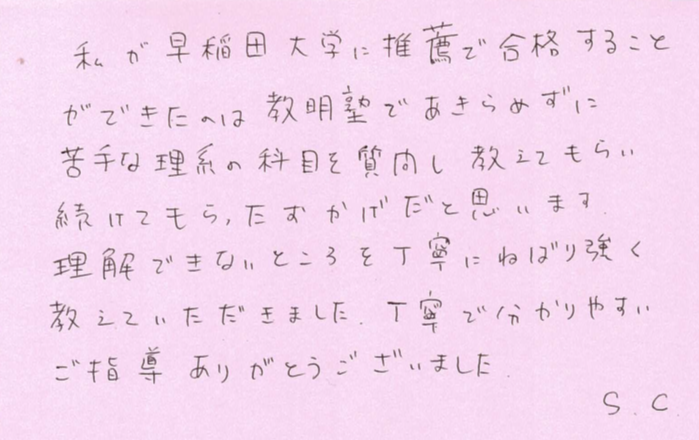 私が早稲田大学に推薦で合格すること
ができたのは教明塾であきらめずに
苦手な理系の科目を質問し教えてもらい
続けてもらったおかげだと思います。
理解できないところを丁寧にねばり強く
教えていただきました。丁寧で分かりやすい
ご指導ありがとうございました。
S.C